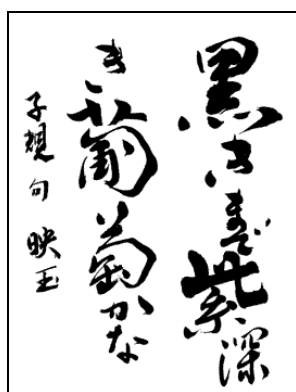 黒きまで紫深
き葡萄かな
子規句 映玉